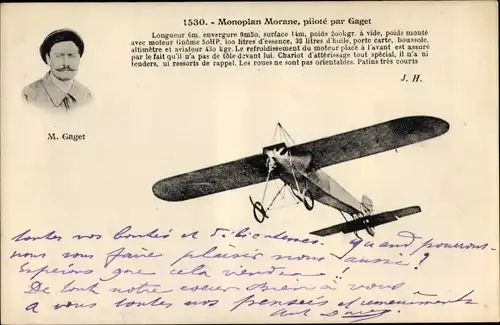 1530. - Monoplan Morane, piloté par Gaget
Longueur 6m. envergure 9m30, surface 14m, poids 200kgr. à vide, poids monté
avec moteur Gnôme 50HP. 100 litres d'essence, 35 litres d'huile, porte carte, boussole,
altimètre et aviateur 430 kgr. Le refroidissement du moteur placé à l'avant est assuré
par le fait qu'il n'a pas de tôle devant lui. Chariot d'atterrissage tout spécial, il n'a ni
tenders, ni ressorts de rappel. Les roues ne sont pas orientables. Patins très courts
J. H.
M. Gaget
toutes vos bontés et délicatesses. Quand pourrons-
nous vous faire plaisir nous aussi ?
Espérons que cela viendra !
De tout notre coeur Bien à vous
à vous toutes nos pensées et